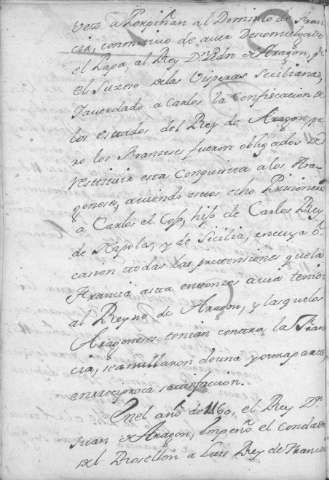 vez a Perpiñan al Dominio de Fran
cia, con motivo de aver Descomulgado
el Papa al Rey Dn Pedro de Aragon, por
el Suceso de las Visperas Sicilianas,
y acordado a Carlos la Confiscacion de
los estados del Rey de Aragon, pe
ro los Franceses fueron obligados de
restituir esta Conquista a los Ara
goneses, aviendo estos echo Prisionero
a Carlos el Cojo, hijo de Carlos Rey
de Napoles, y de Sicilia, en cuya o
casion todas las pretensiones que la
Francia asta entonces avia tenido
al Reyno de Aragon, y las que los
Aragoneses tenian contra la Fran
cia, se anullaron de una y otra parte
en reciproca satisfacion.
En el año de 1460, el Rey Dn
Juan de Aragon, empeñó el Condado
del Rosellon a Luis Rey de Francia